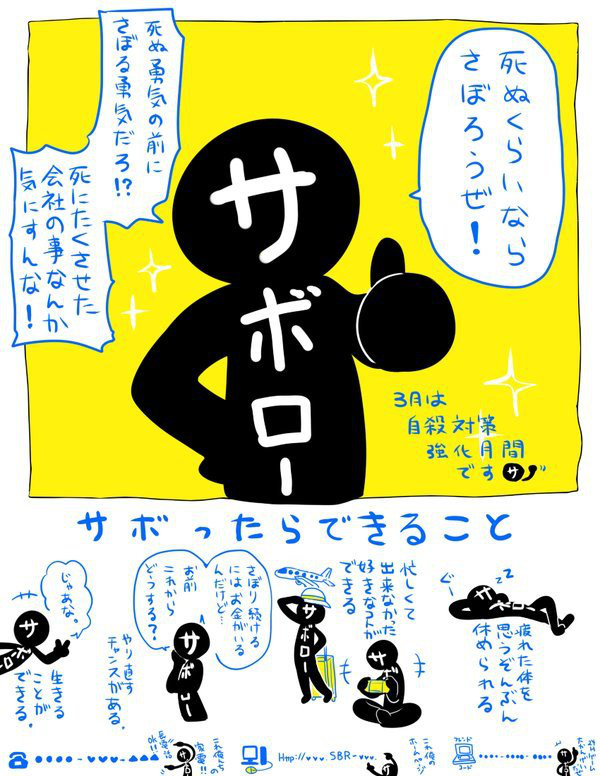 死ぬくらいなら
さぼろうぜ!
死ぬ勇気の前に
さぼる勇気だろ!?
死にたくさせた
会社の事なんか
気にすんな!
サボロー
3月は
自殺対策
強化月間
です
サ
サボったらできること
疲れた体を
思うぞんぶん
休められる
ぐー
zz
サボロー
忙しくて
出来なかった
好きなことが
できる
サボ
サボロー
さぼり続ける
にはお金がいる
んだけど…
お前
これから
どうする?
サボロー
やり直す
チャンスがある。
じゃあな。
サ
生きる
ことが
できる。
http://www.SBR-
これ俺の
ホームページ